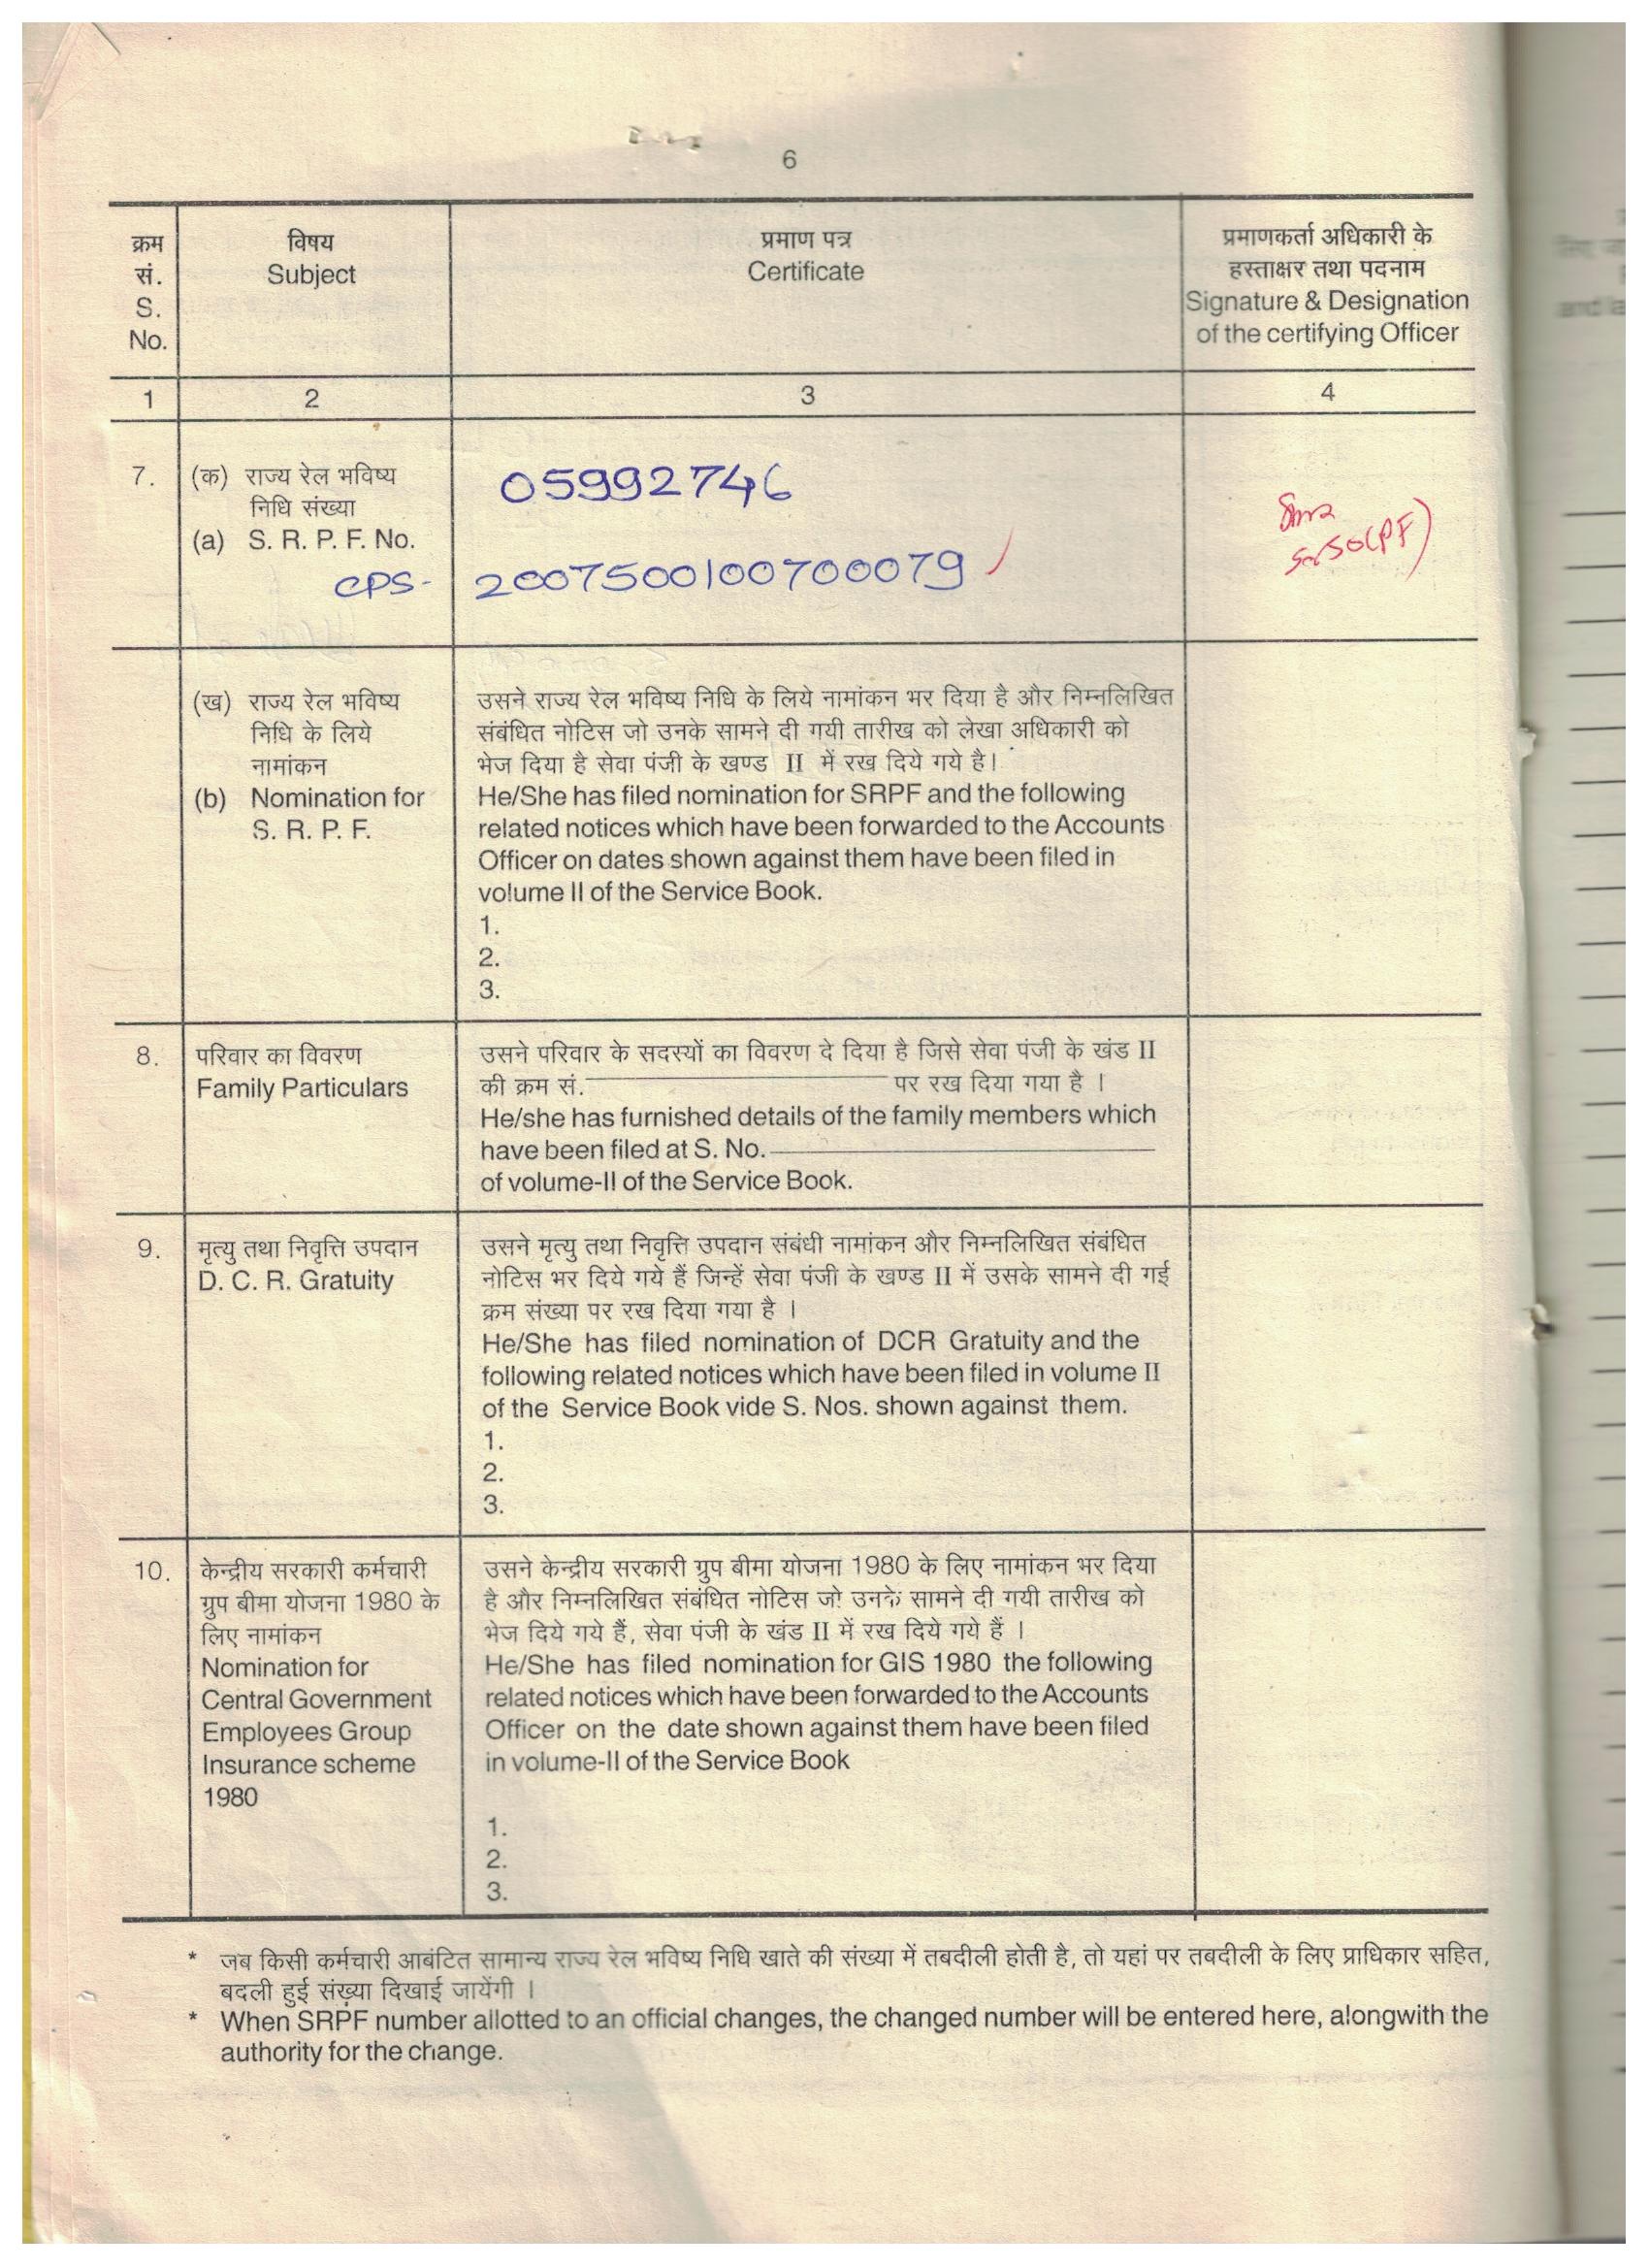 6
क्रम
सं.
S.
No.
विषय
Subject
प्रमाण पत्र
Certificate
प्रमाणकर्ता अधिकारी के
हस्ताक्षर तथा पदनाम
Signature & Designation
of the certifying Officer
1 2 3 4
7. (क) राज्य रेल भविष्य
निधि संख्या
(a) S. R. P. F. No.
05992746
CPS- 2007500100700079
(PF)
(ख) राज्य रेल भविष्य
निधि के लिये
नामांकन
(b) Nomination for
S. R. P. F.
उसने राज्य रेल भविष्य निधि के लिये नामांकन भर दिया है और निम्नलिखित
संबंधित नोटिस जो उनके सामने दी गयी तारीख को लेखा अधिकारी को
भेज दिया है सेवा पंजी के खण्ड II में रख दिये गये है।
He/She has filed nomination for SRPF and the following
related notices which have been forwarded to the Accounts
Officer on dates shown against them have been filed in
volume II of the Service Book.
1.
2.
3.
8. परिवार का विवरण
Family Particulars
उसने परिवार के सदस्यों का विवरण दे दिया है जिसे सेवा पंजी के खंड II
की क्रम सं. पर रख दिया गया है ।
He/she has furnished details of the family members which
have been filed at S. No.
of volume-II of the Service Book.
9. मृत्यु तथा निवृत्ति उपदान
D. C. R. Gratuity
उसने मृत्यु तथा निवृत्ति उपदान संबंधी नामांकन और निम्नलिखित संबंधित
नोटिस भर दिये गये हैं जिन्हें सेवा पंजी के खण्ड II में उसके सामने दी गई
क्रम संख्या पर रख दिया गया है ।
He/She has filed nomination of DCR Gratuity and the
following related notices which have been filed in volume II
of the Service Book vide S. Nos. shown against them.
1.
2.
3.
10. केन्द्रीय सरकारी कर्मचारी
ग्रुप बीमा योजना 1980 के
लिए नामांकन
Nomination for
Central Government
Employees Group
Insurance scheme
1980
उसने केन्द्रीय सरकारी ग्रुप बीमा योजना 1980 के लिए नामांकन भर दिया
है और निम्नलिखित संबंधित नोटिस जो उनके सामने दी गयी तारीख को
भेज दिये गये हैं, सेवा पंजी के खंड II में रख दिये गये हैं ।
He/She has filed nomination for GIS 1980 the following
related notices which have been forwarded to the Accounts
Officer on the date shown against them have been filed
in volume-II of the Service Book
1.
2.
3.
* जब किसी कर्मचारी आबंटित सामान्य राज्य रेल भविष्य निधि खाते की संख्या में तबदीली होती है, तो यहां पर तबदीली के लिए प्राधिकार सहित,
बदली हुई संख्या दिखाई जायेंगी ।
* When SRPF number allotted to an official changes, the changed number will be entered here, alongwith the
authority for the change.